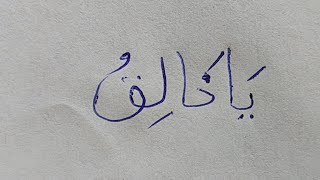 يَا خَالِقُ